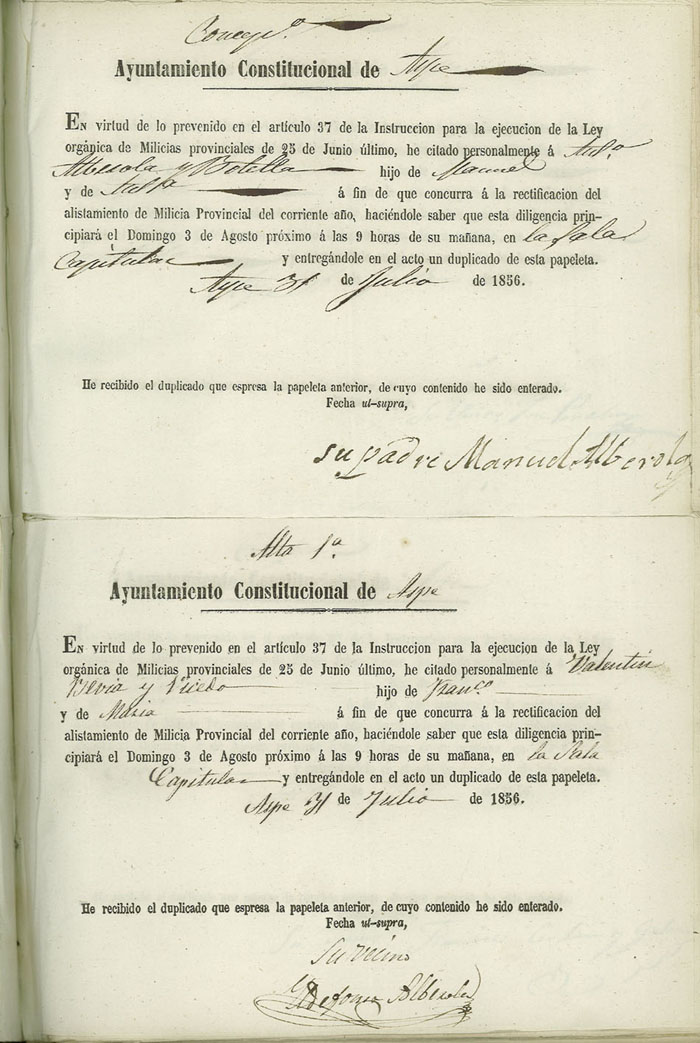 Concep.n
Ayuntamiento Constitucional de Aspe
EN virtud de lo prevenido en el artículo 37 de la Instruccion para la ejecucion de la Ley
orgánica de Milicias provinciales de 25 de Junio último, he citado personalmente á Anto.
Alberola y Botella hijo de Manuel
y de á fin de que concurra á la rectificacion del
alistamiento de Milicia Provincial del corriente año, haciéndole saber que esta diligencia prin-
cipiará el Domingo 3 de Agosto próximo á las 9 horas de su mañana, en la Sala
Capitular y entregándole en el acto un duplicado de esta papeleta.
Aspe 31 de Julio de 1856.
He recibido el duplicado que espresa la papeleta anterior, de cuyo contenido he sido enterado.
Fecha ut-supra,
su padre Manuel Alberola
Alta 1a.
Ayuntamiento Constitucional de Aspe
EN virtud de lo prevenido en el artículo 37 de la Instruccion para la ejecucion de la Ley
orgánica de Milicias provinciales de 25 de Junio último, he citado personalmente á Valentin
Bevia y hijo de Franco.
y de Maria á fin de que concurra á la rectificacion del
alistamiento de Milicia Provincial del corriente año, haciéndole saber que esta diligencia prin-
cipiará el Domingo 3 de Agosto próximo á las 9 horas de su mañana, en la Sala
Capitular y entregándole en el acto un duplicado de esta papeleta.
Aspe 31 de Julio de 1856.
He recibido el duplicado que espresa la papeleta anterior, de cuyo contenido he sido enterado.
Fecha ut-supra,
Su vecino
Ildefonso Alberola